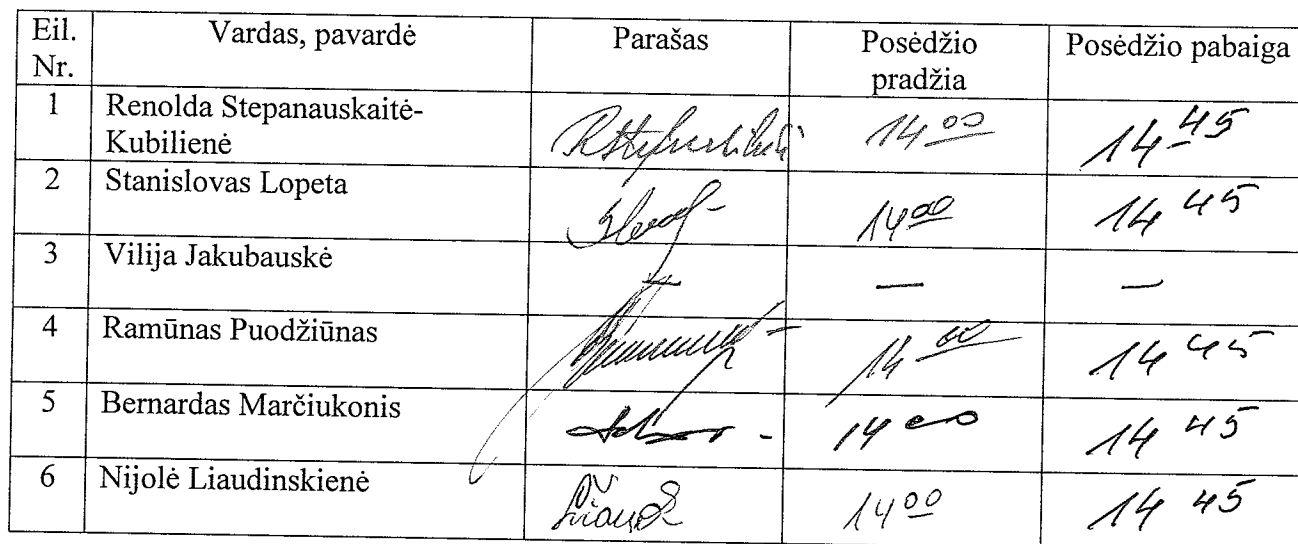 Eil. Nr. Vardas, pavardė Parašas Posėdžio pradžia Posėdžio pabaiga
1 Renolda Stepanauskaitė-Kubilienė 14 00 14 45
2 Stanislovas Lopeta 14 00 14 45
3 Vilija Jakubauskė — — —
4 Ramūnas Puodžiūnas 14 00 14 45
5 Bernardas Marčiukonis 14 00 14 45
6 Nijolė Liaudinskienė 14 00 14 45